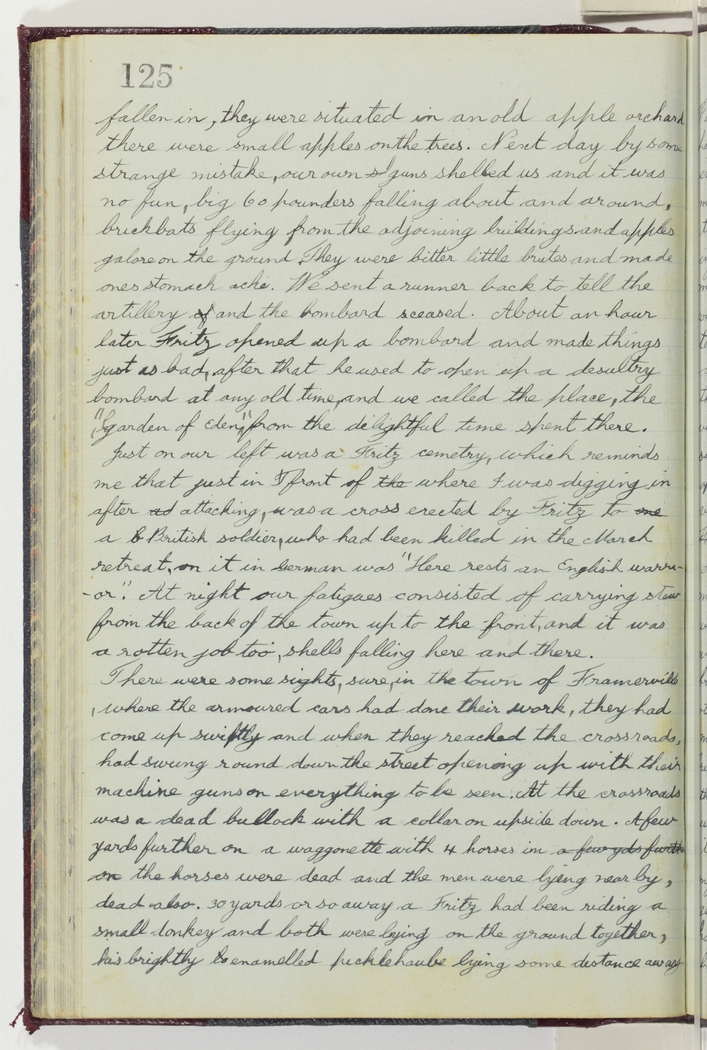 125
fallen in, they were situated in an old apple orchard
there were small apples on the trees. Next day by some
strange mistake, our own guns shelled us and it was
no fun, big 60 pounders falling about and around,
brickbats flying from the adjoining buildings and apples
galore on the ground. They were bitter little brutes and made
ones stomach ache. We sent a runner back to tell the
artillery and the bombard sceased. About an hour
later Fritz opened up a bombard and made things
just as bad, after that he used to open up a desultry
bombard at any old time, and we called the place, the
"Garden of Eden," from the delightful time spent there.
Just on our left was a Fritz cemetry, which reminds
me that just in front of the where I was digging in
after ad attacking, was a cross erected by Fritz to one
a British soldier, who had been killed in the March
retreat, on it in German was "Here rests an English warri-
-or". At night our fatigues consisted of carrying stew
from the back of the town up to the front, and it was
a rotten job too, shells falling here and there.
There were some sights, sure, in the town of Framerville
, where the armoured cars had done their work, they had
come up swiftly and when they reached the crossroads,
had swung round down the street opening up with their
machine guns on everything to be seen. At the crossroads
was a dead bullock with a collar on upside down. A few
yards further on a waggonette with 4 horses in a few yds furth
on the horses were dead and the men were lying near by,
dead also. 30 yards or so away a Fritz had been riding a
small donkey and both were lying on the ground together,
his brightly enamelled picklehaube lying some distance away